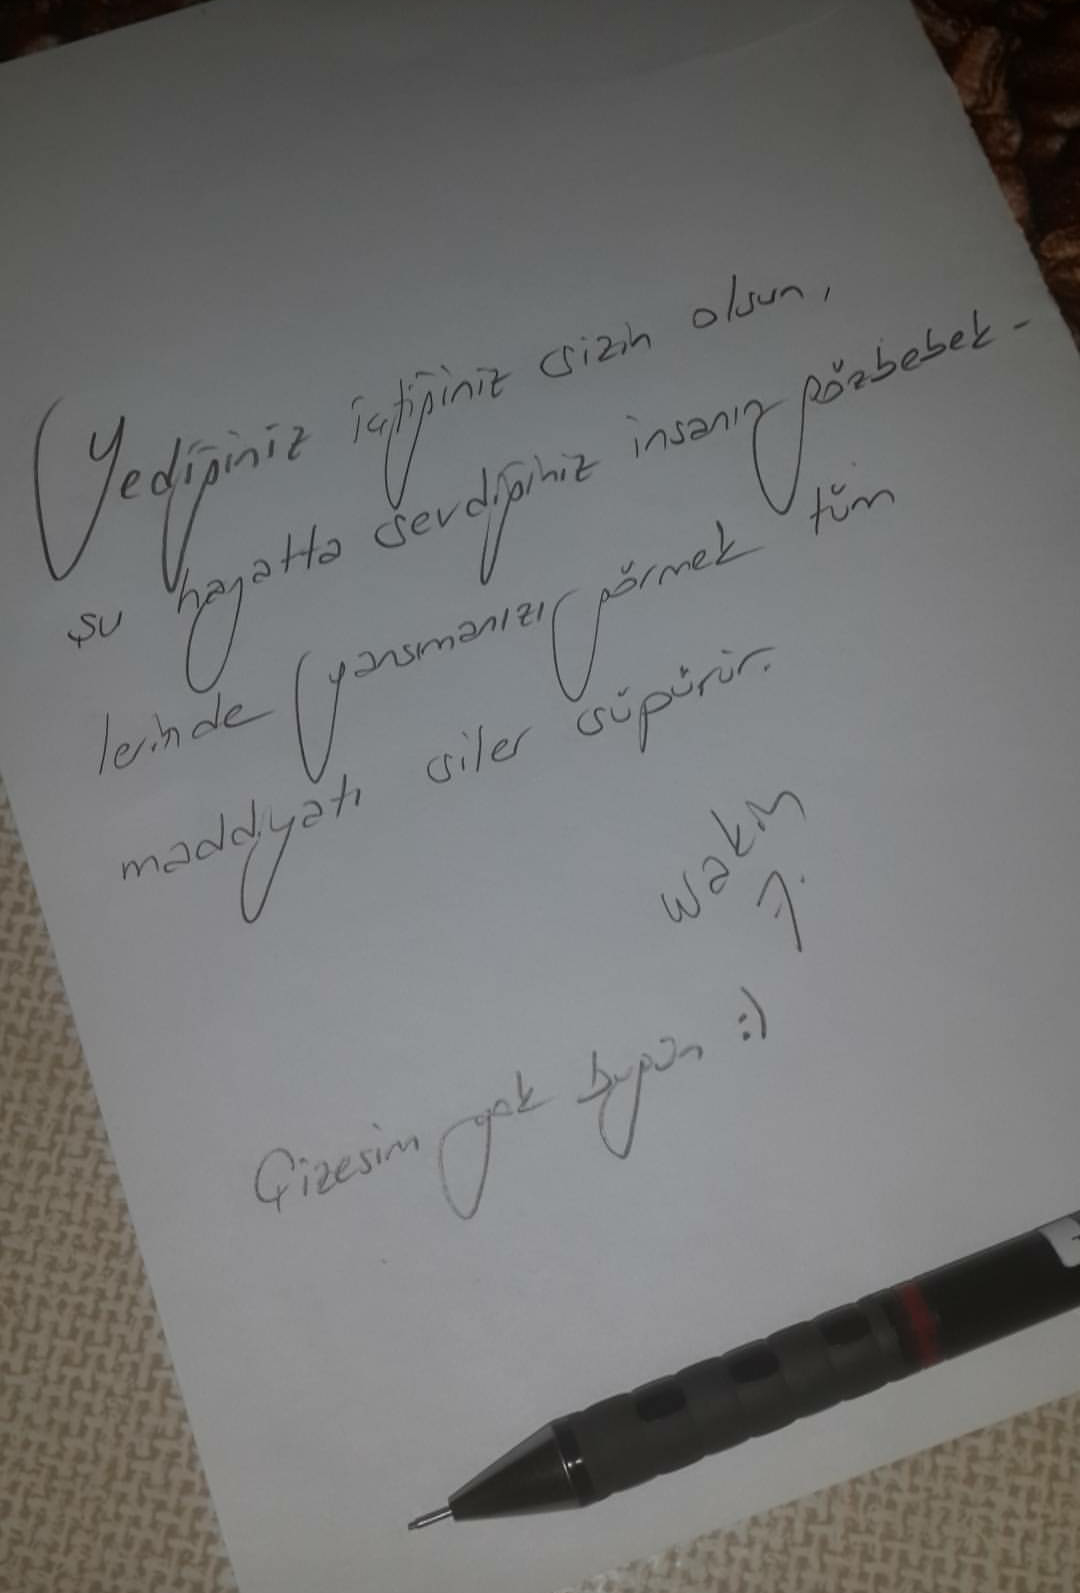 Yediğiniz içtiğiniz sizin olsun,
şu hayatta sevdiğiniz insanın gözbebek-
lerinde yansımanızı görmek tüm
maddiyatı siler süpürür.
wakin
Çizesim yok bugün :)